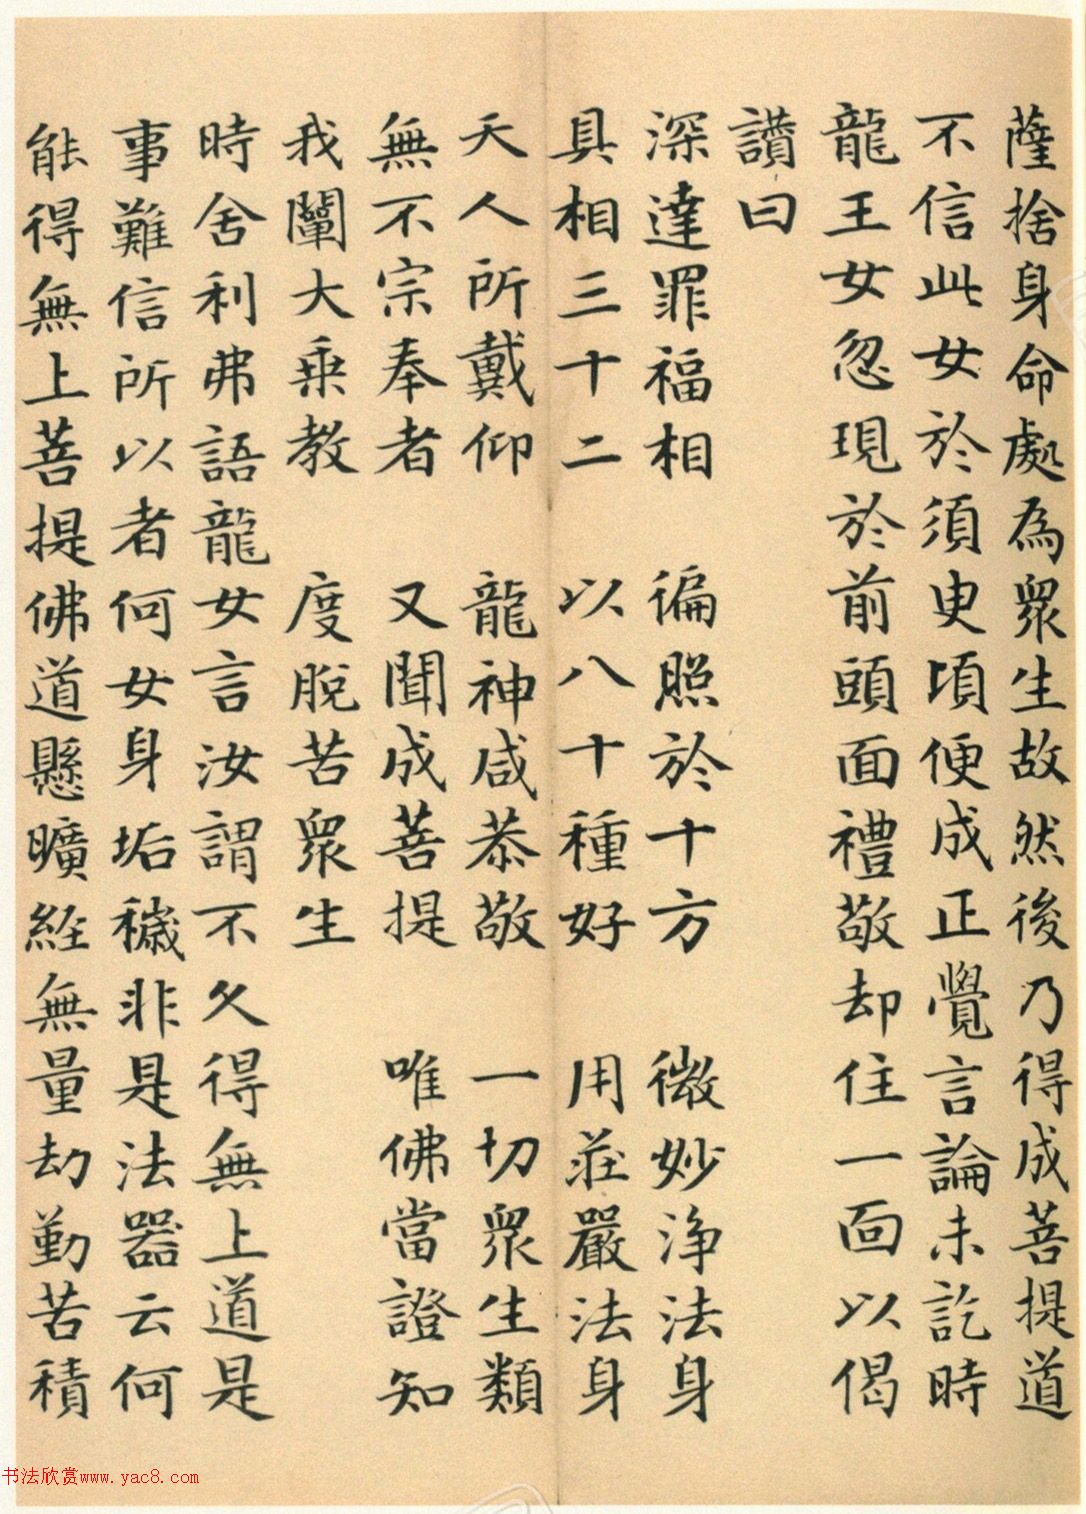 薩捨身命處為眾生故然後乃得成菩提道
不信此女於須臾頃便成正覺言論未訖時
龍王女忽現於前頭面禮敬却住一面以偈
讚曰
深達罪福相 徧照於十方 微妙淨法身
具相三十二 以八十種好 用莊嚴法身
天人所戴仰 龍神咸恭敬 一切眾生類
無不宗奉者 又聞成菩提 唯佛當證知
我闡大乘教 度脫苦眾生
時舍利弗語龍女言汝謂不久得無上道是
事難信所以者何女身垢穢非是法器云何
能得無上菩提佛道懸曠經無量劫勤苦積
书法欣赏www.yac8.com